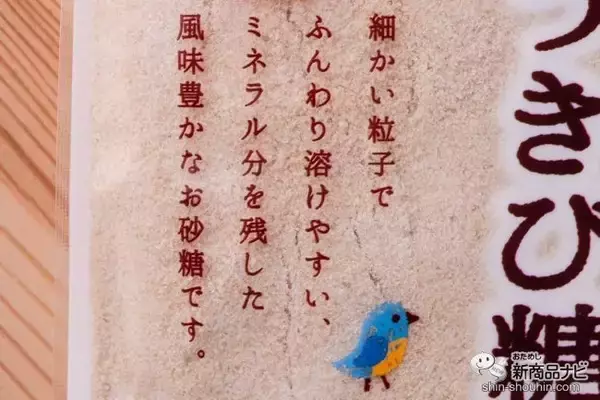 うきび糖
細かい粒子で
ふんわり溶けやすい、
ミネラル分を残した
風味豊かなお砂糖です。
おためし
新商品ナビ
shin-shouhin.com